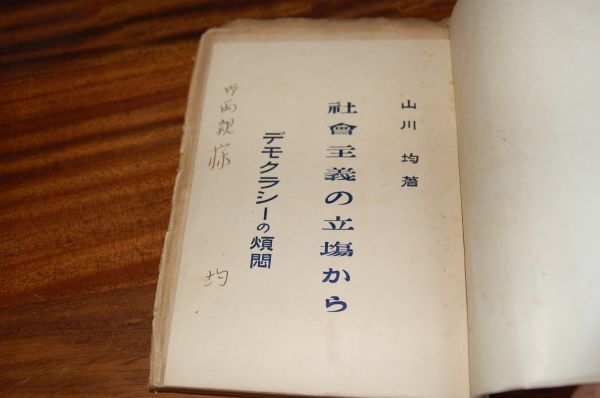 山川均著
社會主義の立塲から
デモクラシーの煩悶
御両親様
均